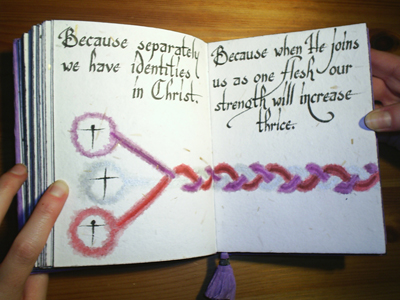 Because separately
we have identities
in Christ.
Because when He joins
us as one flesh our
strength will increase
thrice.